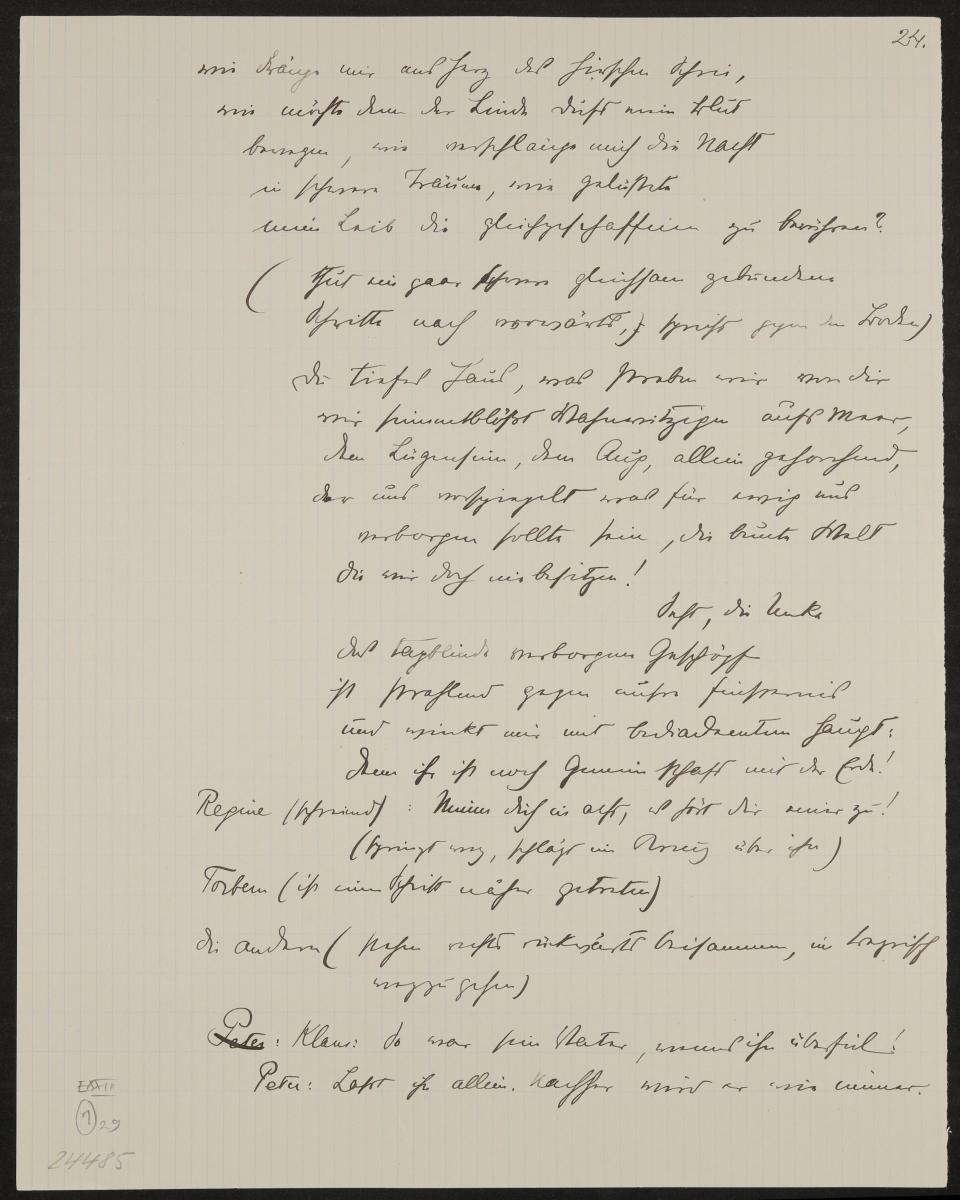 24.
wie dränge mir ans Herz des Hirschen Schrei,
wie möchte denn der Linde Duft mein Blut
bewegen, wie verschlänge mich die Nacht
in schwere Träume, wie gelüstete
mein Leib die gleichgeschaffenen zu berühren?
(thut ein paar schwere gleichsam gebundene
Schritte nach vorwärts,) spricht gegen den Boden)
du tiefes Haus, was streben wir von dir
wir sinnentblößt Wahnwitzigen aufs Meer,
dem Lügensinn, dem Aug, allein gehorchend,
der uns vorspiegelt was für ewig uns
verborgen sollte sein, die bunte Welt
die wir doch nie besitzen!
Seht, die Unke
das tagblinde verborgene Geschöpf
ist strahlend gegen unsre Finsternis
und winkt mir mit bediademtem Haupt:
denn ihr ist noch Gemeinschaft mit der Erde!
Regine (schreiend): Nimm dich in acht, es hört dir einer zu!
(springt weg, schlägt ein Kreuz über ihn)
Torbern (ist einen Schritt näher getreten)
die andern (stehen rechts rückwärts beisammen, im Begriff
wegzugehen)
Peter: Klaus: So war sein Vater, wenns ihn überfiel!
Peter: Lasst ihn allein. Nachher wird er wie immer.
29
24485